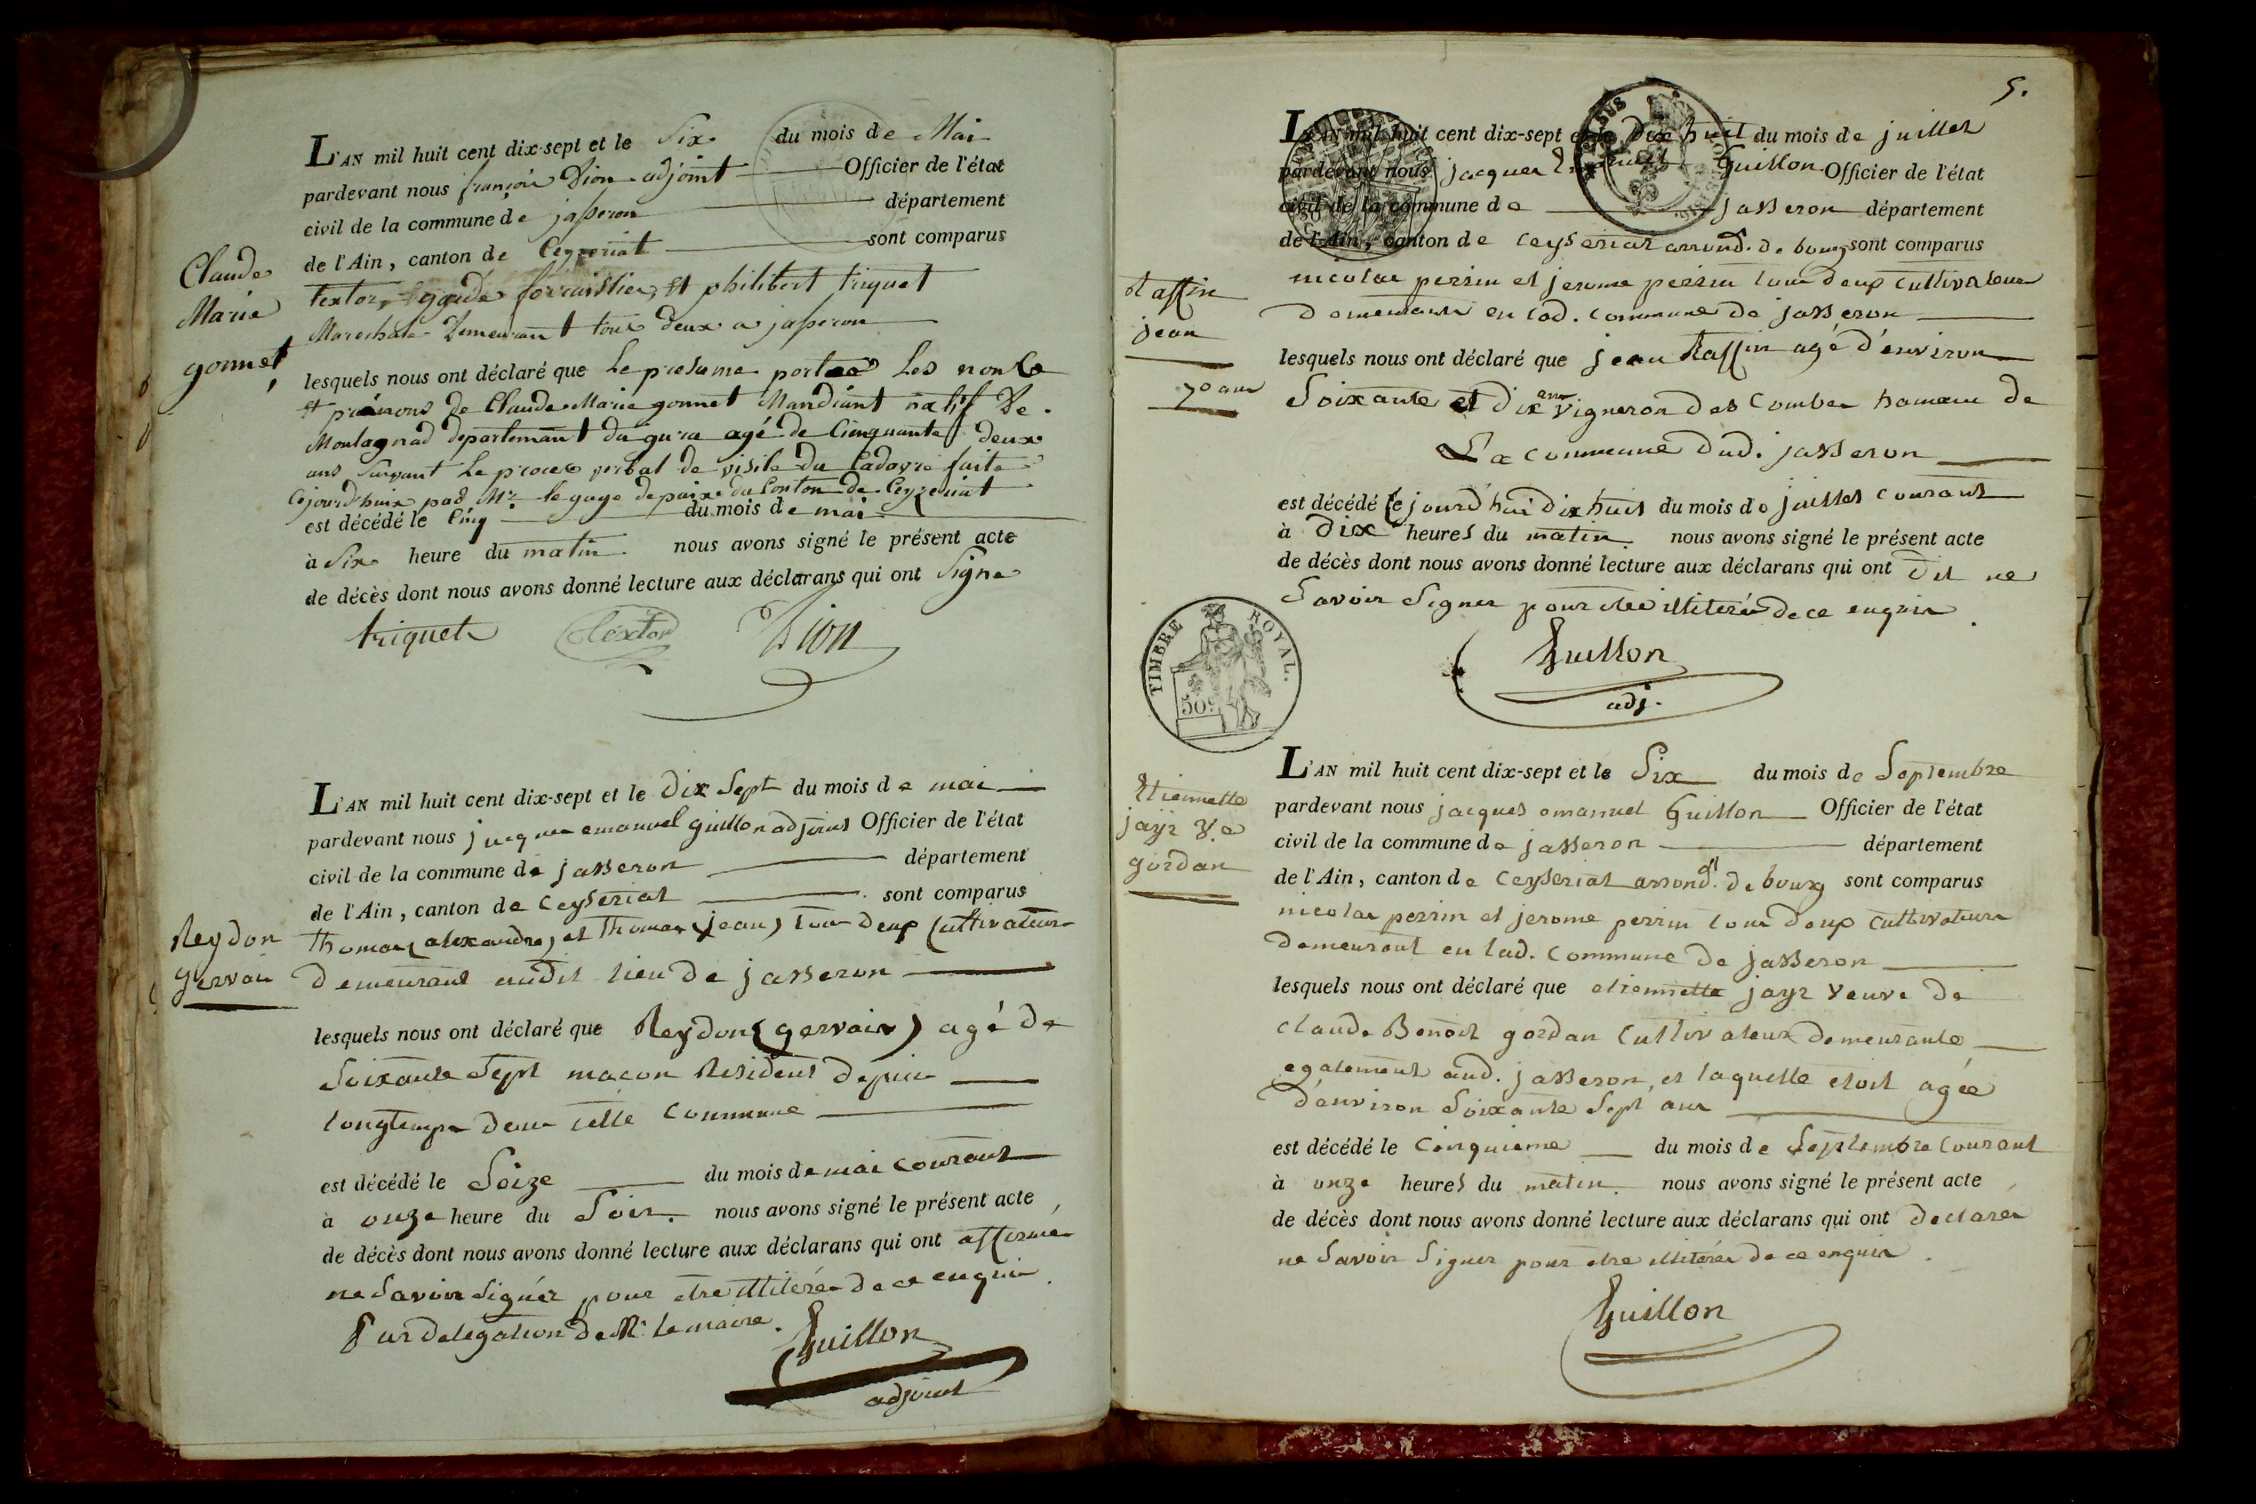 Claude
Marie
gonnet
L'AN mil huit cent dix-sept et le Six du mois de Mai
pardevant nous françois Dion adjoint Officier de l'état
civil de la commune de jasseron département
de l'Ain, canton de Ceyzeriat sont comparus
textor, garde forraistier, et philibert triquet
Marechale Demeurant tous deux a jasseron
lesquels nous ont déclaré que Le presumé porter Les nons
et prénons de Claude Marie gonnet Mandiant natif De
Montagnad departemant du gura agé de Cinquante deux
ans suivant Le proces verbal de visite du Cadavre faite
Cejourd'huix par Mr le guge depaix du Conton de Ceyzeriat
est décédé le Cinq du mois de mai
à Six heure du matin nous avons signé le présent acte
de décès dont nous avons donné lecture aux déclarans qui ont Signe
triquet textor Dion
Reydon
gervais
L'AN mil huit cent dix-sept et le Dix Sept du mois de mai
pardevant nous jacques emanuel guillon adjoint Officier de l'état
civil de la commune de jasseron département
de l'Ain, canton de Ceyseriat sont comparus
thomas (alexandre) et thomas (jean) tous deux Cultivateurs
demeurant audit lieu de jasseron
lesquels nous ont déclaré que Reydon (gervais) agé de
Soixante Sept macon Résident depuis
longtemps dans celle Commune
est décédé le Seize du mois de mai courant
à onze heure du Soir. nous avons signé le présent acte
de décès dont nous avons donné lecture aux déclarans qui ont affirmés
ne Savoir Signér pour etre illiterés de ce enquis
Par delegation de Mr le maire.
Guillon
adjoint
5.
L'AN mil huit cent dix-sept et le Dix huit du mois de juillet
pardevant nous jacques Guillon Officier de l'état
civil de la commune de jasseron département
de l'Ain, canton de Ceyseriat arrond. de bourg sont comparus
nicolas perrin et jerome perrin tous deux Cultivateurs
demeurants en lad. commune de jasseron
Raffin
jean
70 ans
lesquels nous ont déclaré que jean Raffin agé d'environ
Soixante et dix ans vigneron des Combes hameau de
La commune dud. jasseron
est décédé Cejourd'hui dix huit du mois de juillet courant
à Dix heures du matin. nous avons signé le présent acte
de décès dont nous avons donné lecture aux déclarans qui ont Dit ne
Savoir Signer pour etre illiterés de ce enquis.
Guillon
adj.
TIMBRE ROYAL.
50c
Etiennette
jayr Ve
gordan
L'AN mil huit cent dix-sept et le Six du mois de Septembre
pardevant nous jacques emanuel Guillon Officier de l'état
civil de la commune de jasseron département
de l'Ain, canton de Ceyseriat arrondt. de bourg sont comparus
nicolas perrin et jerome perrin tous deux Cultivateurs
demeurant en lad. commune de jasseron
lesquels nous ont déclaré que etiennette jayr Veuve de
claude Benoit gordan Cultivateur demeurante
egalement aud. jasseron, et laquelle etoit agée
d'environ Soixante Sept ans
est décédé le Cinquieme du mois de Septembre Courant
à onze heures du matin. nous avons signé le présent acte
de décès dont nous avons donné lecture aux déclarans qui ont declarés
ne Savoir Signer pour etre illiterés de ce enquis.
Guillon